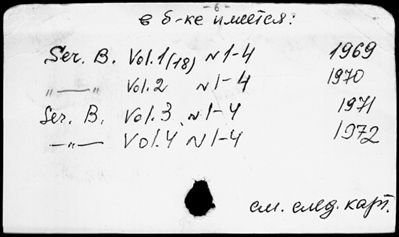 -6-
в б-ке имеется:
Ser. B. Vol. 1 (18) N 1-4 1969
„—„ Vol. 2 N 1-4 1970
Ser. B. Vol. 3 N 1-4 1971
—„— Vol. 4 N 1-4 1972
см. след. карт.